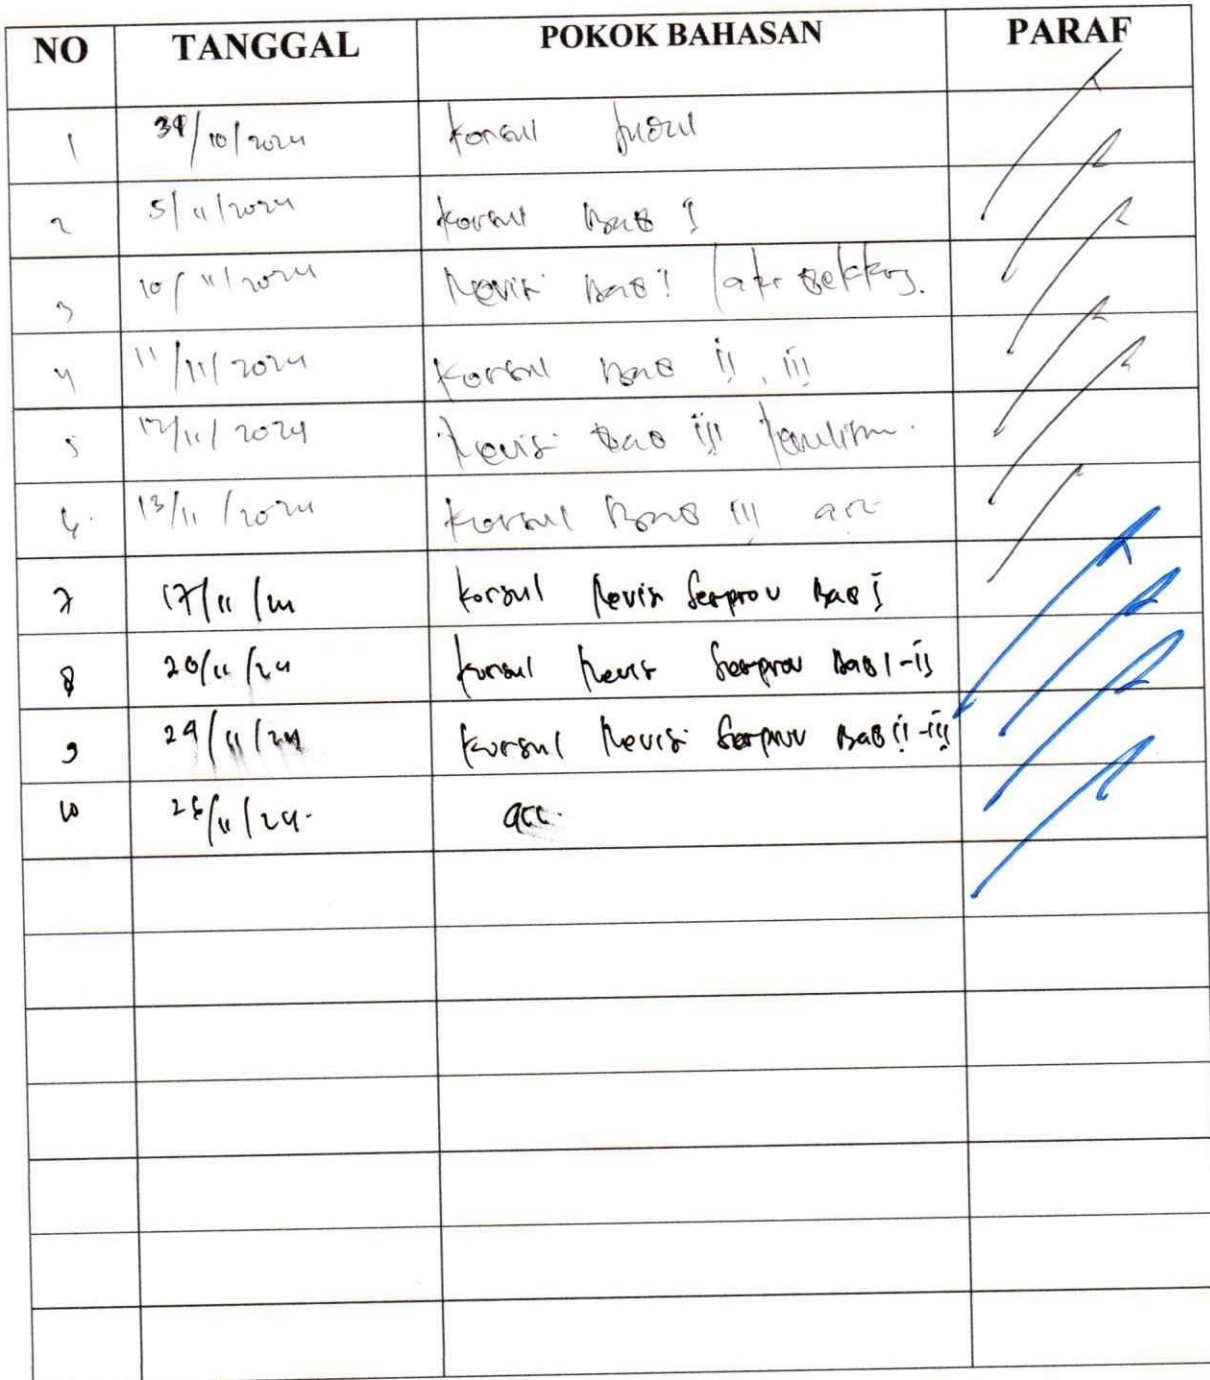 NO TANGGAL POKOK BAHASAN PARAF
1 /10/2024 Konsul Judul
2 5/11/2024 Konsul Bab I
3 10/11/2024 Revisi Bab I
4 11/11/2024 Konsul Bab II, III
5 12/11/2024 Revisi Bab III
6. 13/11/2024 Konsul Bab III acc
7 17/11/ Konsul Revisi Bab I
8 20/11/24 Konsul Revisi Bab I-II
9 /11/24 Konsul Revisi Bab II-III
10 /11/24. acc.